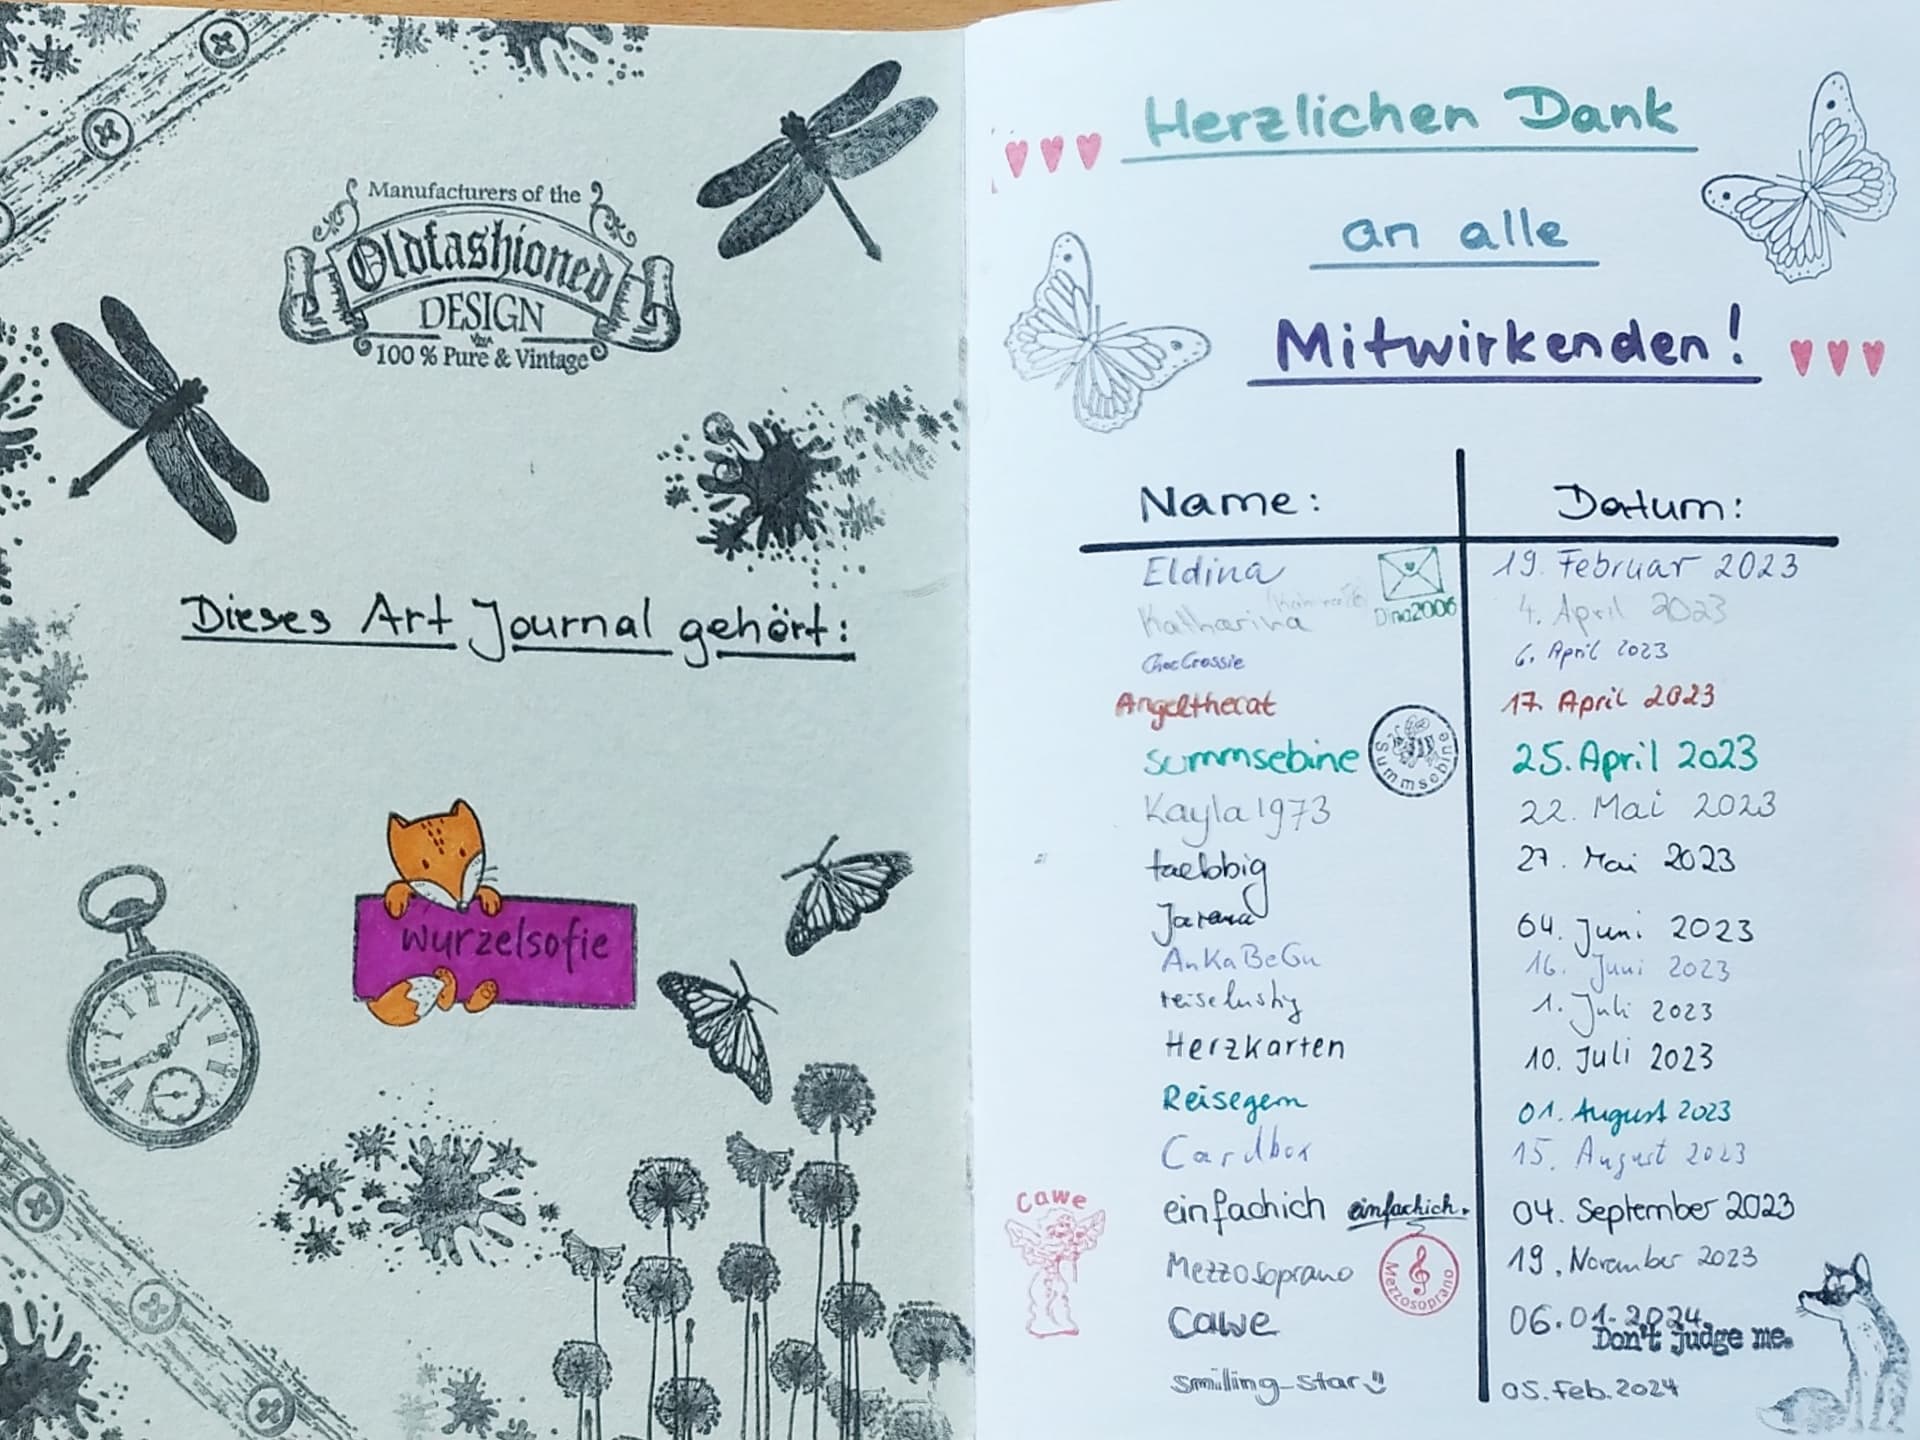 Manufacturers of the
Oldfashioned
DESIGN
100 % Pure & Vintage
Dieses Art Journal gehört:
wurzelsofie
Herzlichen Dank
an alle
Mitwirkenden!
Name: Datum:
Eldina 19. Februar 2023
Katharina Dina2006 4. April 2023
ChocCrossie 6. April 2023
Angelthecat 17. April 2023
summsebine Summsebine 25. April 2023
Kayla1973 22. Mai 2023
taebbig 27. Mai 2023
04. Juni 2023
AnKaBeGu 16. Juni 2023
reiselustig 1. Juli 2023
Herzkarten 10. Juli 2023
Reisegern 01. August 2023
Cardbox 15. August 2023
einfachich einfachich. 04. September 2023
Mezzosoprano Mezzosoprano 19. November 2023
Cawe Cawe 06.01.2024
Don't judge me.
smiling-star 05. Feb. 2024